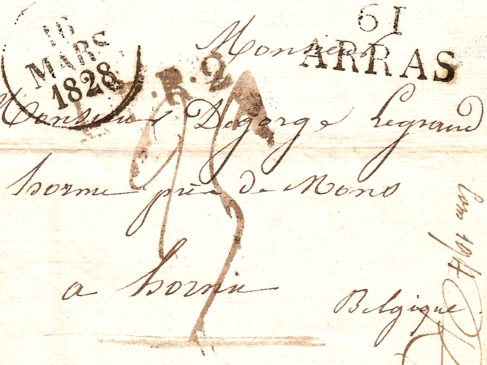 16
MARS
1828
61
ARRAS
L.F.R.2
Monsieur
Monsieur Degorge Legrand
hornu près de Mons
a hornu
Belgique